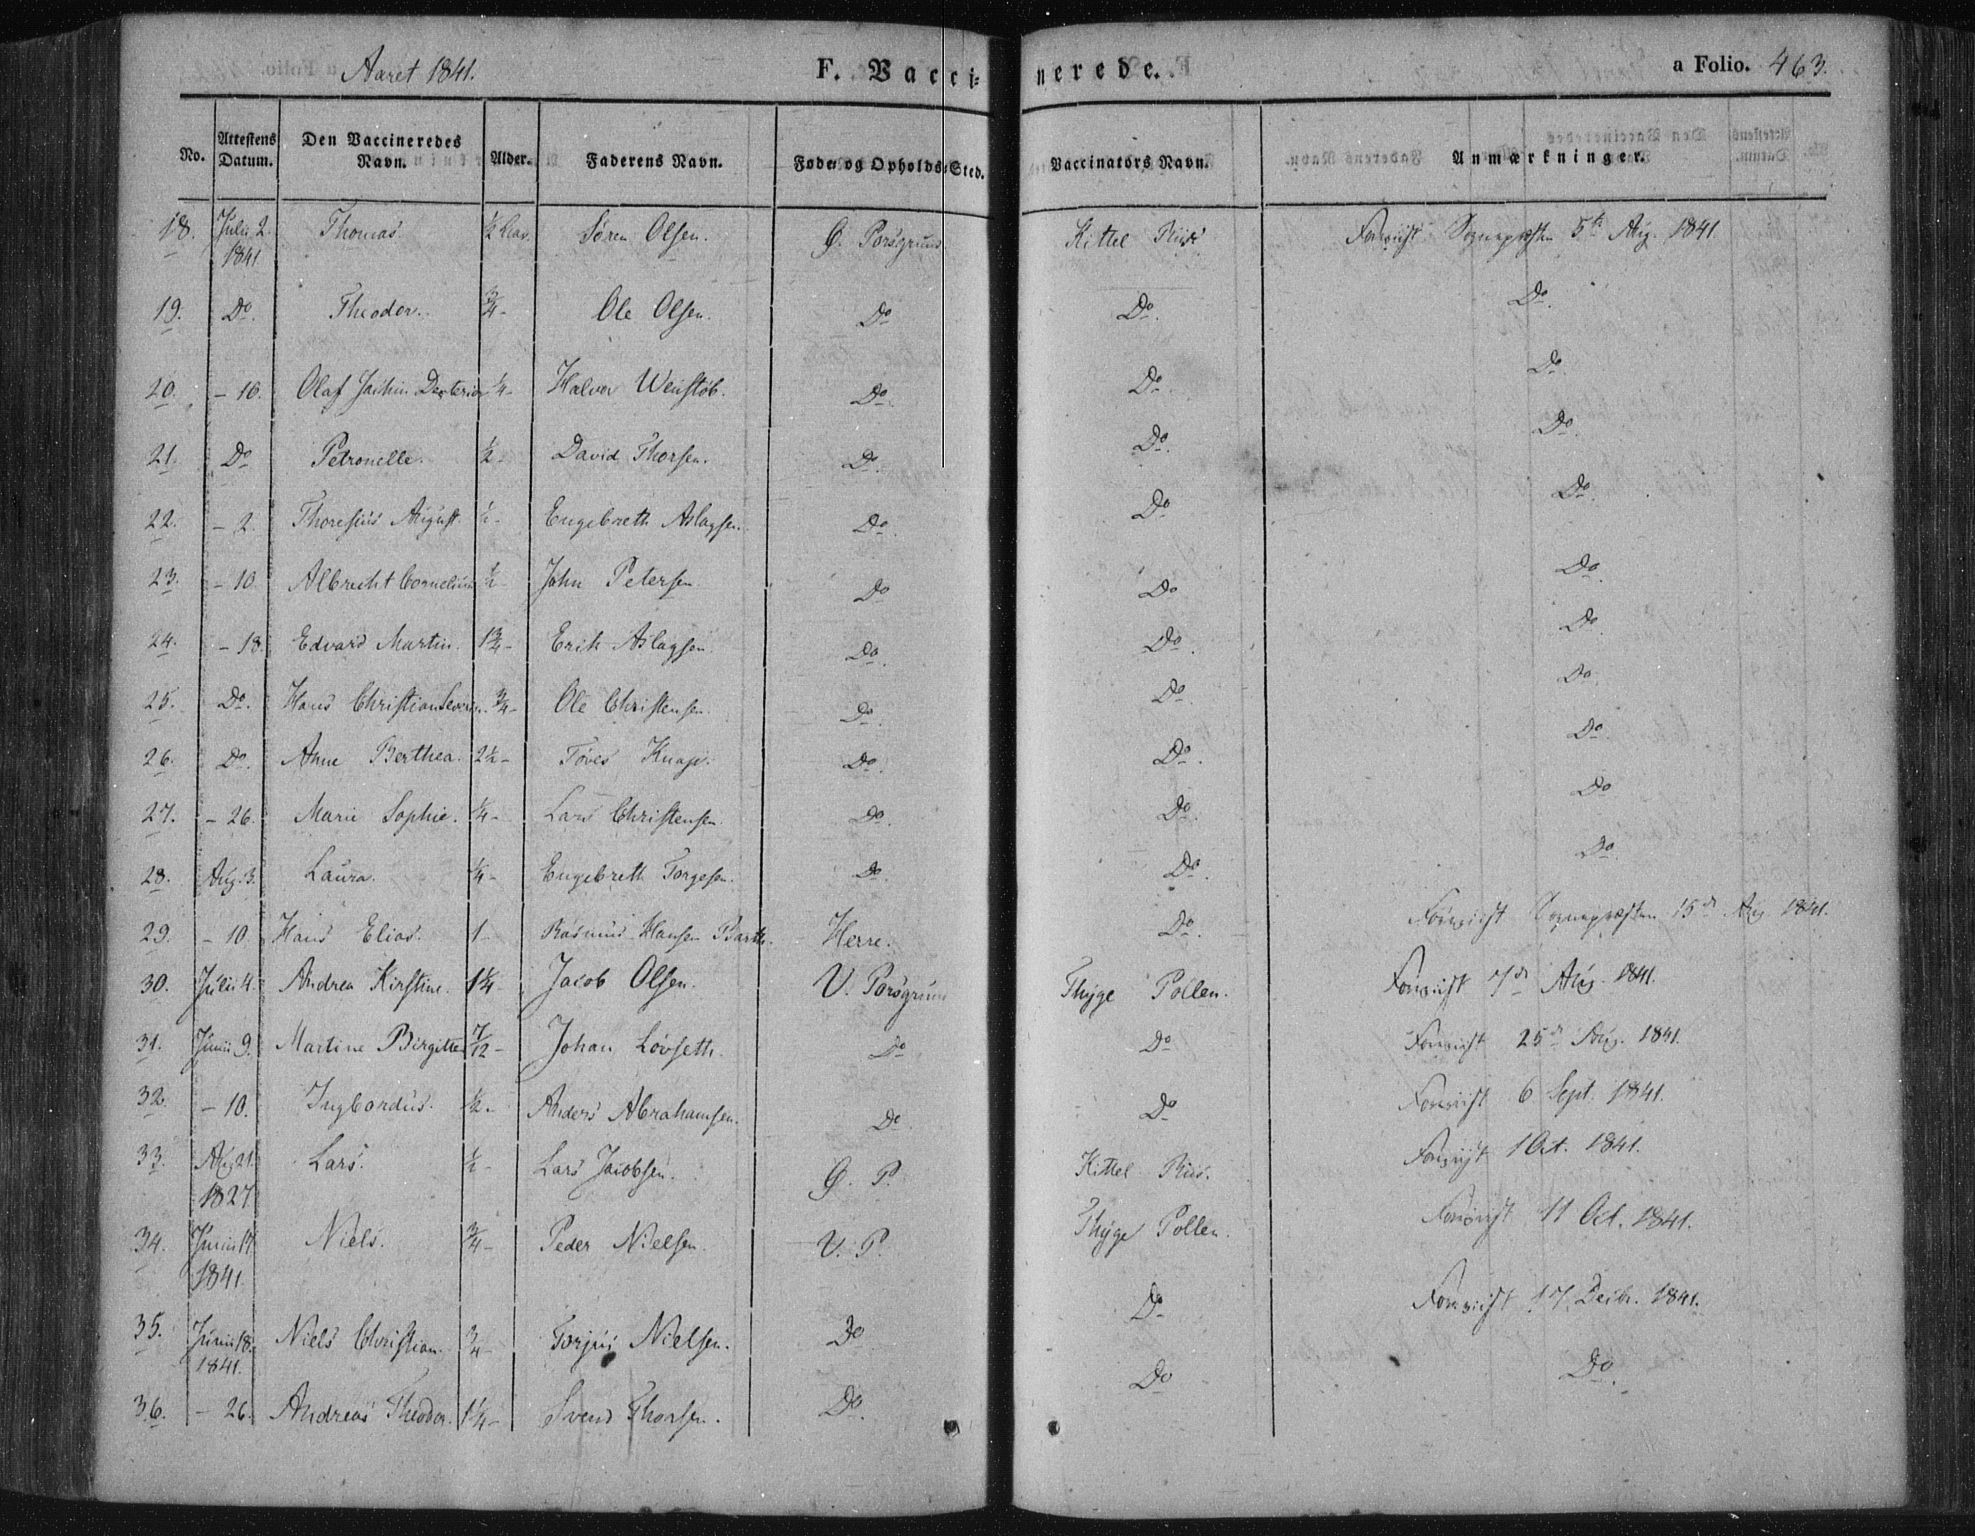 Aaret 1841. F. Vaccinerede. a Folio. 463.
No. Attestens Datum. Den Vaccineredes Navn. Alder. Faderens Navn. Føde- og Opholds-Sted. Vaccinators Navn. Anmærkninger.
18. Julii 2. 1841 Thomas. ½ Sören Olsen. Kittel Riis 5te Aug. 1841.
19. Do. Theodor. ¾ - Ole Olsen. Do Do. Do.
20. - 10. Olaf ¼ - Halvor Wenstöb. Do. Do. Do.
21. Do Petronelle. ½ - David Thorsen. Do. Do. Do.
22. - 2. Thoresius August. ½ - Engebreth Aslagsen. Do. Do Do.
23. - 10. Albrecht Cornelius ½ - John Petersen. Do Do. Do.
24. - 18. Edvard Martin. 1¾ - Erik Aslagsen. Do. Do. Do
25. Do. Hans Christian Severin. ¾ - Ole Christensen. Do. Do. Do.
26. Do. Anne Berthea. 2½ - Töves Knap. Do. Do. Do.
27. - 26. Marie Sophie. ¼ - Lars Christensen. Do. Do. Do
28. Aug. 3. Laura. ¼ - Engebreth Torgesen. Do Do. Do
29. - 10. Hans Elias. 1 - Rasmus Hansen Herre. Do. 15de Aug 1841.
30. Julii 4. Andrea Kirstine. 1¼ Jacob Olsen. V. Porsgrund Thyge Pollen. 7de Aug. 1841.
31. Junii 9. Martine Birgitte 7/12 - Johan Lövseth. Do Do 25de Aug. 1841.
32. - 10. Ingbordus. ½ - Anders Abrahamsen. Do Do 6 Sept. 1841.
33. Aug 21. 1827 Lars. ½ - Lars Jacobsen. Kittel Riis. 1 Oct. 1841.
34. Junii 14 1841. Niels. ¾ - Peder Nielsen. V. P. Thyge Pollen. 11 Oct. 1841.
35. Junii 18. 1841. Niels Christian. ¾ - Torjus Nielsen. Do Do 17 Decbr. 1841.
36. - 26. Andreas Theodor. 1¼ - Svend Thorsen. Do. Do Do.